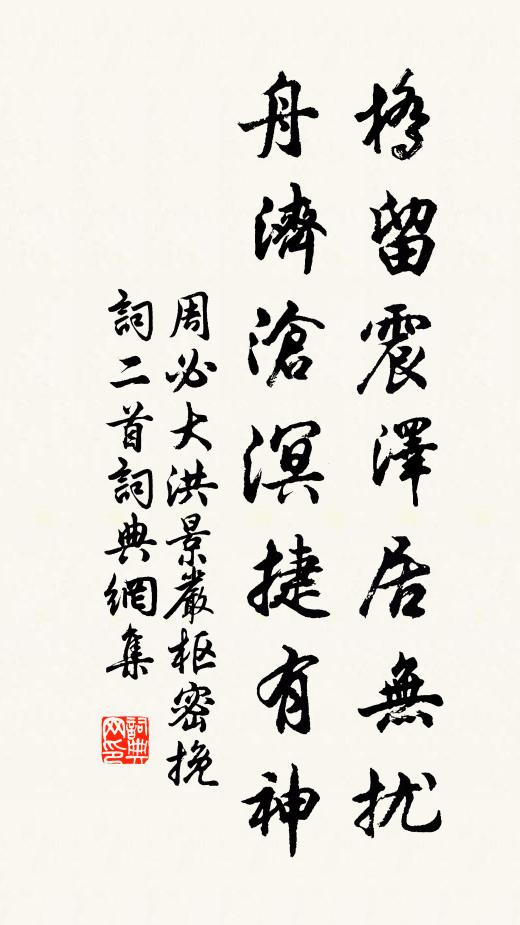 橋留震澤居無擾
舟濟滄溟捷有神
周必大洪景嚴枢密挽
詞二首詞典網集
詞典
网印